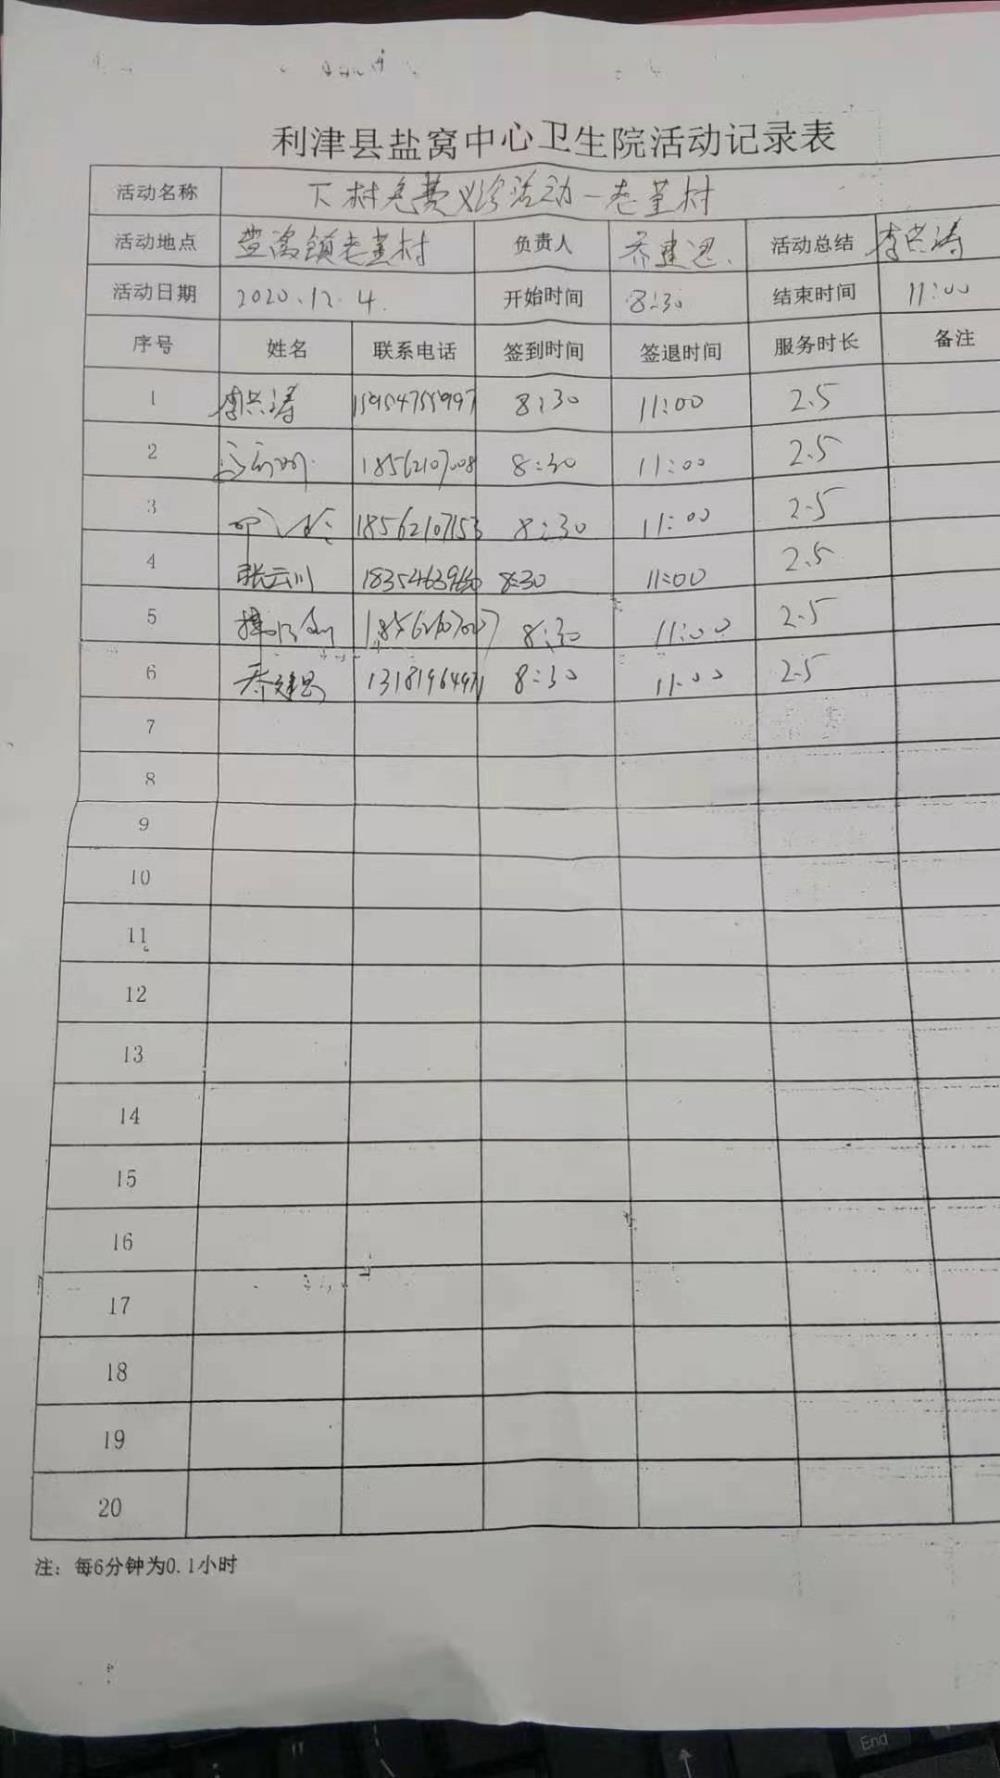 利津县盐窝中心卫生院活动记录表
活动名称 下村免费义诊活动一老董村
活动地点 盐窝镇老董村 负责人 活动总结 李兴涛
活动日期 2020.12.4. 开始时间 8:30 结束时间 11:00
序号 姓名 联系电话 签到时间 签退时间 服务时长 备注
1 李兴涛 15954755997 8:30 11:00 2.5
2 18562107008 8:30 11:00 2.5
3 18562107153 8:30 11:00 2.5
4 张云川 8:30 11:00 2.5
5 8:30 11:00 2.5
6 8:30 11:00 2.5
7
8
9
10
11
12
13
14
15
16
17
18
19
20
注：每6分钟为0.1小时
End